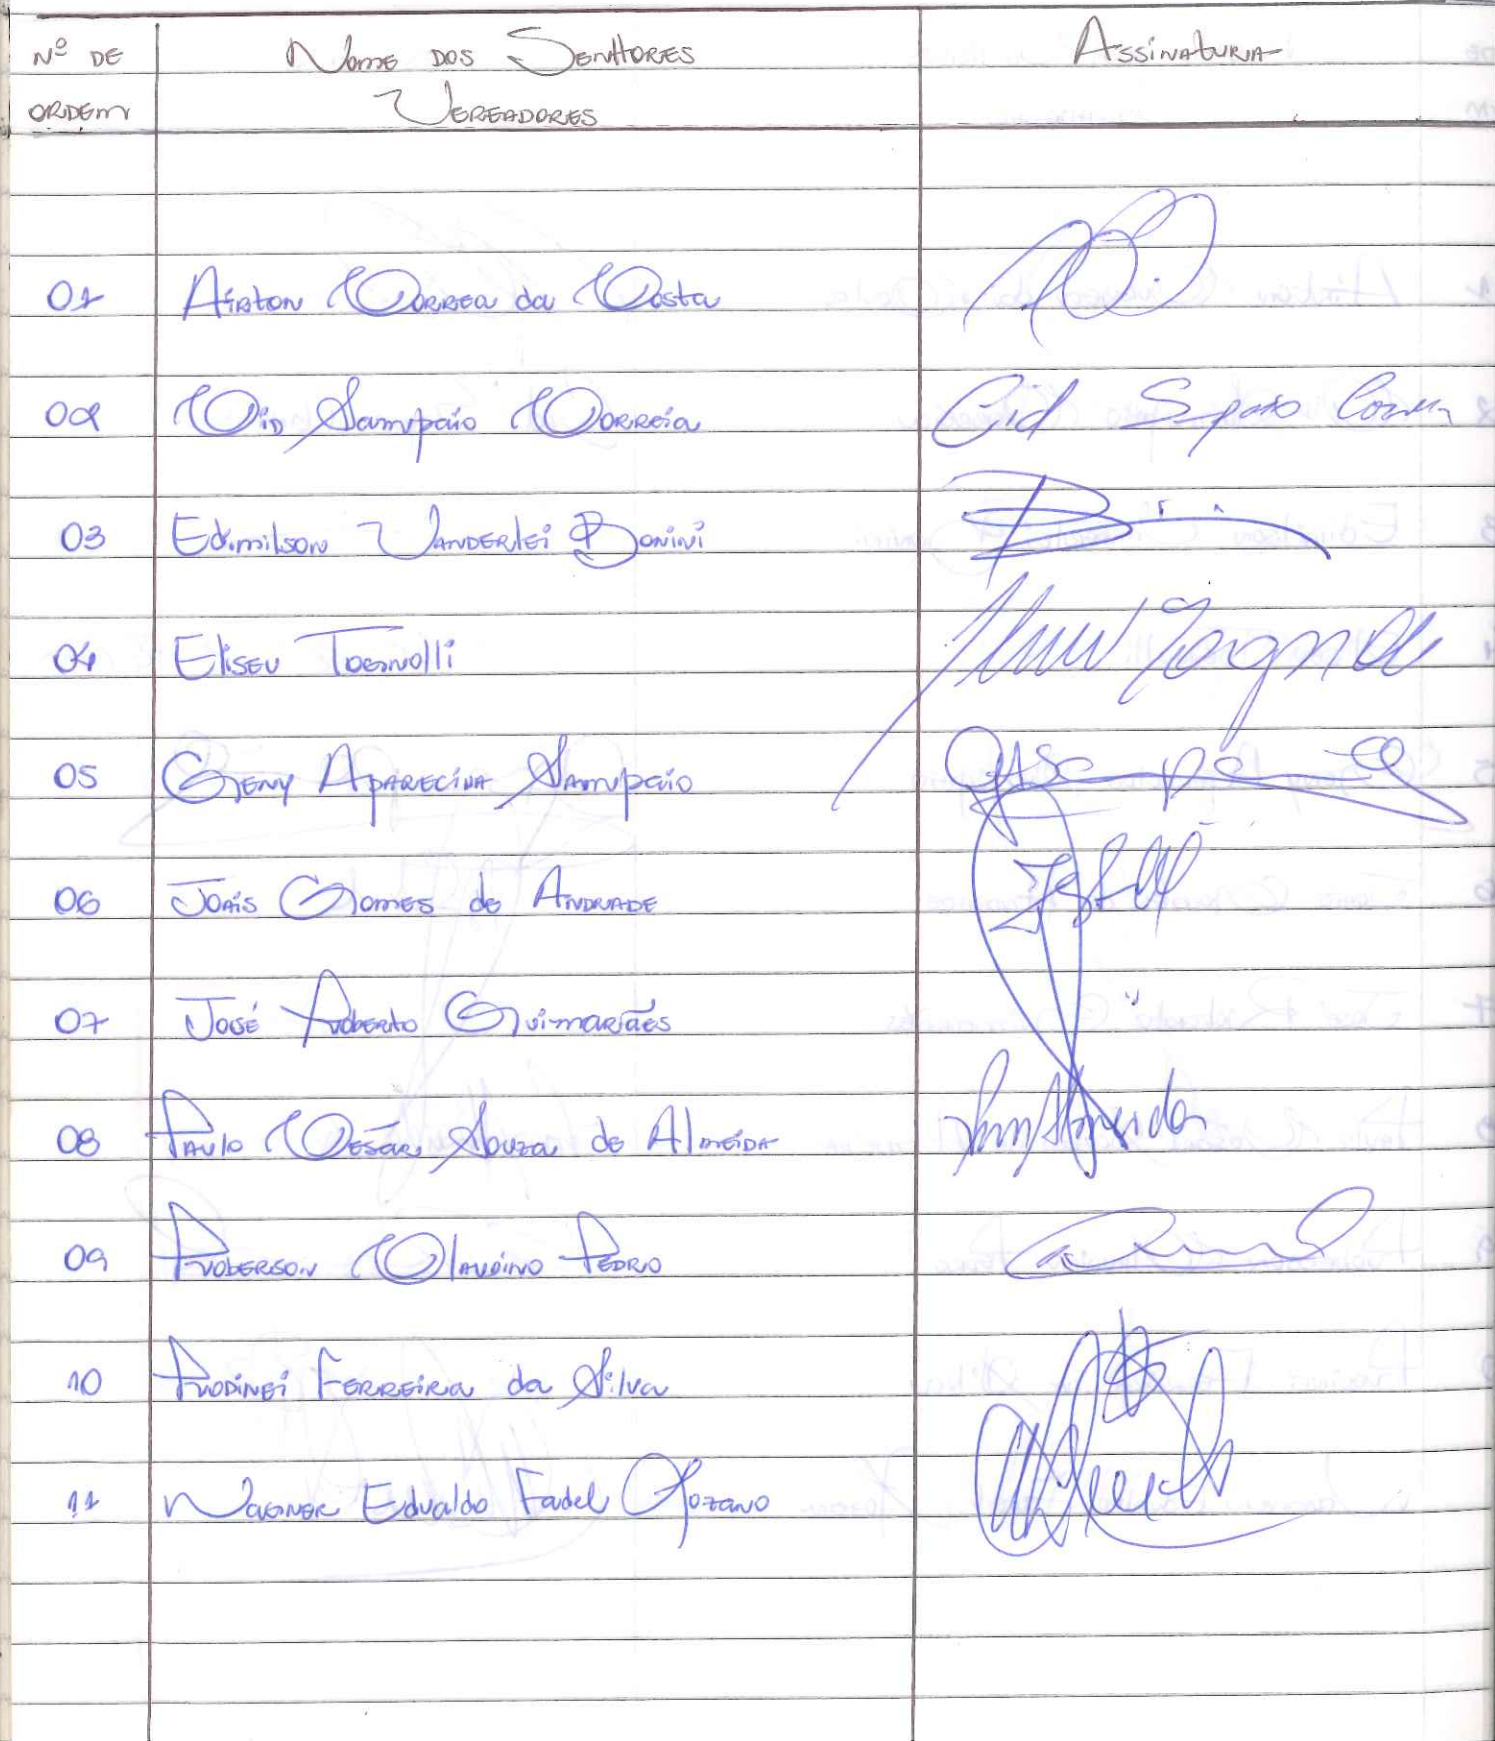 Nº DE Nome dos Senhores Assinatura
ORDEM Vereadores
01 Airton Correa da Costa
02 Cid Sampaio Correia Cid
03 Edimilson Vanderlei Bonini
04 Eliseu Tognolli
05 Geny Aparecida Sampaio
06 Joais Gomes de Andrade
07 José Roberto Guimarães
08 Paulo César Souza de Almeida
09 Roberson Claudino Pedro
10 Rodinei Ferreira da Silva
11 Wagner Edvaldo Fadel Lozano